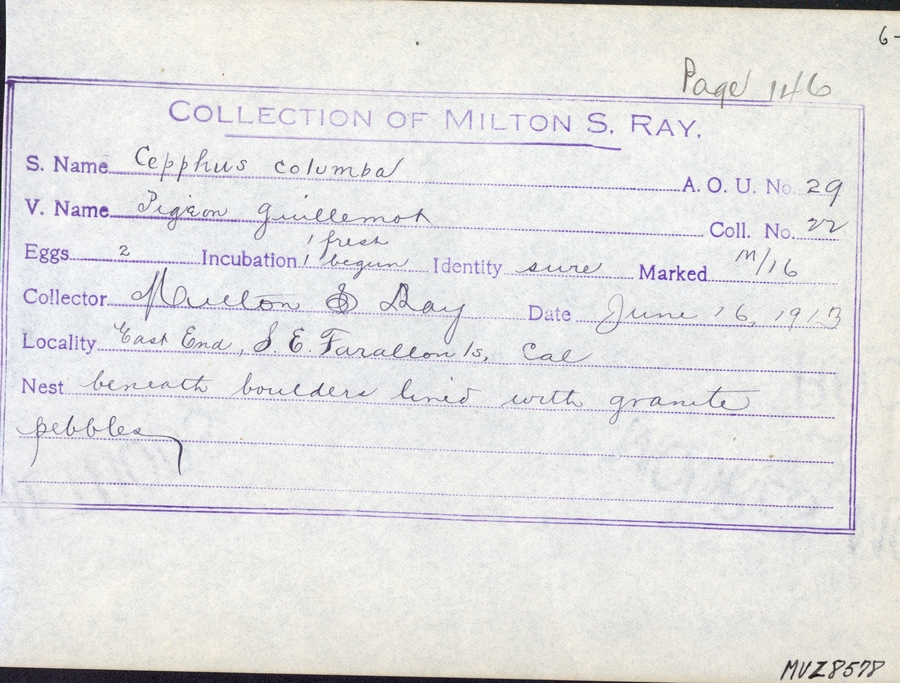 6-
Page 146
COLLECTION OF MILTON S. RAY.
S. Name Cepphus columba A. O. U. No. 29
V. Name Pigeon Guillemot Coll. No. 22
Eggs 2 Incubation 1 fresh 1 begun Identity sure Marked m/16
Collector Milton S Ray Date June 16, 1913
Locality East End, S. E. Farallon Is, Cal
Nest beneath boulders lined with granite
pebbles
MVZ8578